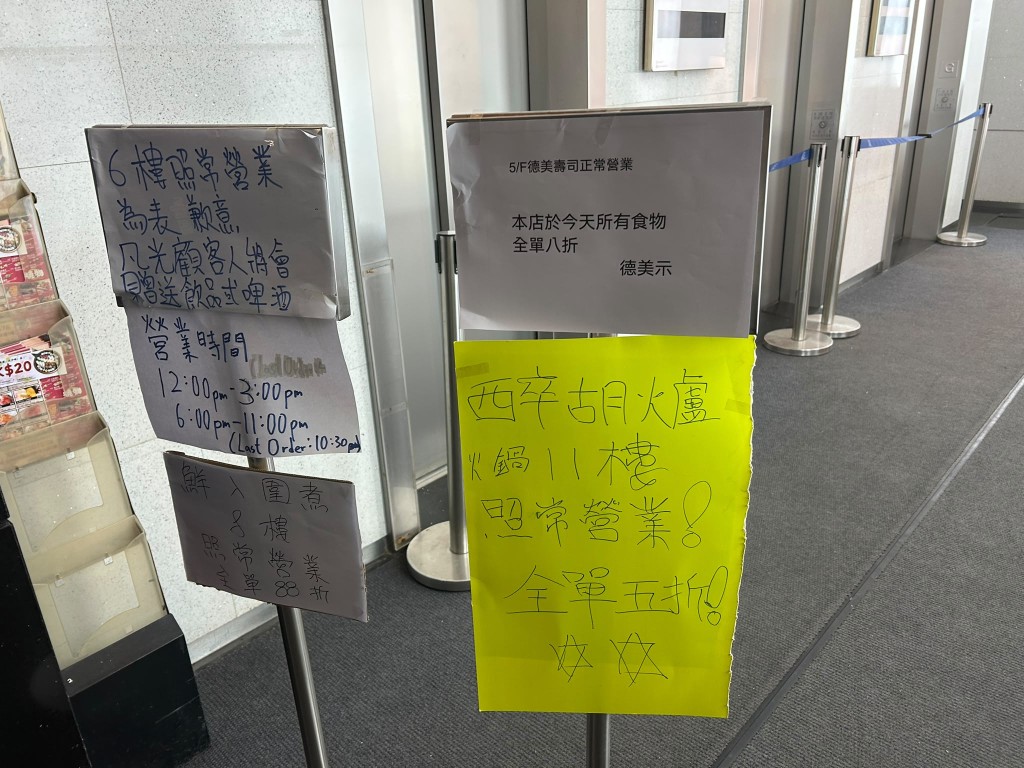 6樓照常營業
為表歉意
凡光顧客人將會
贈送飲品或啤酒
營業時間
(Last Order
12:00pm-3:00pm
6:00pm-11:00pm
(Last Order:10:30pm)
鮮入圍煮
8樓
照常營業
全單88折
5/F德美壽司正常營業
本店於今天所有食物
全單八折
德美示
西卒胡月火爐
火鍋11樓
照常營業!
全單五折!
K$20